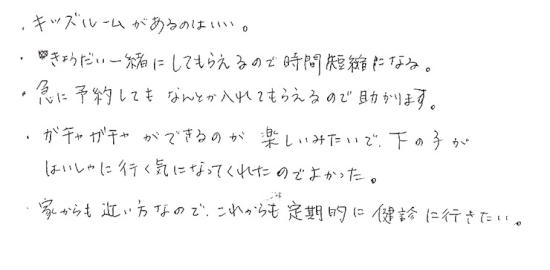 ・キッズルームがあるのはいい。
・きょうだい一緒にしてもらえるので時間短縮になる。
・急に予約しても なんとか入れてもらえるので助かります。
・ガチャガチャができるのが 楽しいみたいで、下の子が
はいしゃに行く気になってくれたのでよかった。
・家からも近い方なので、これからも定期的に健診に行きたい。